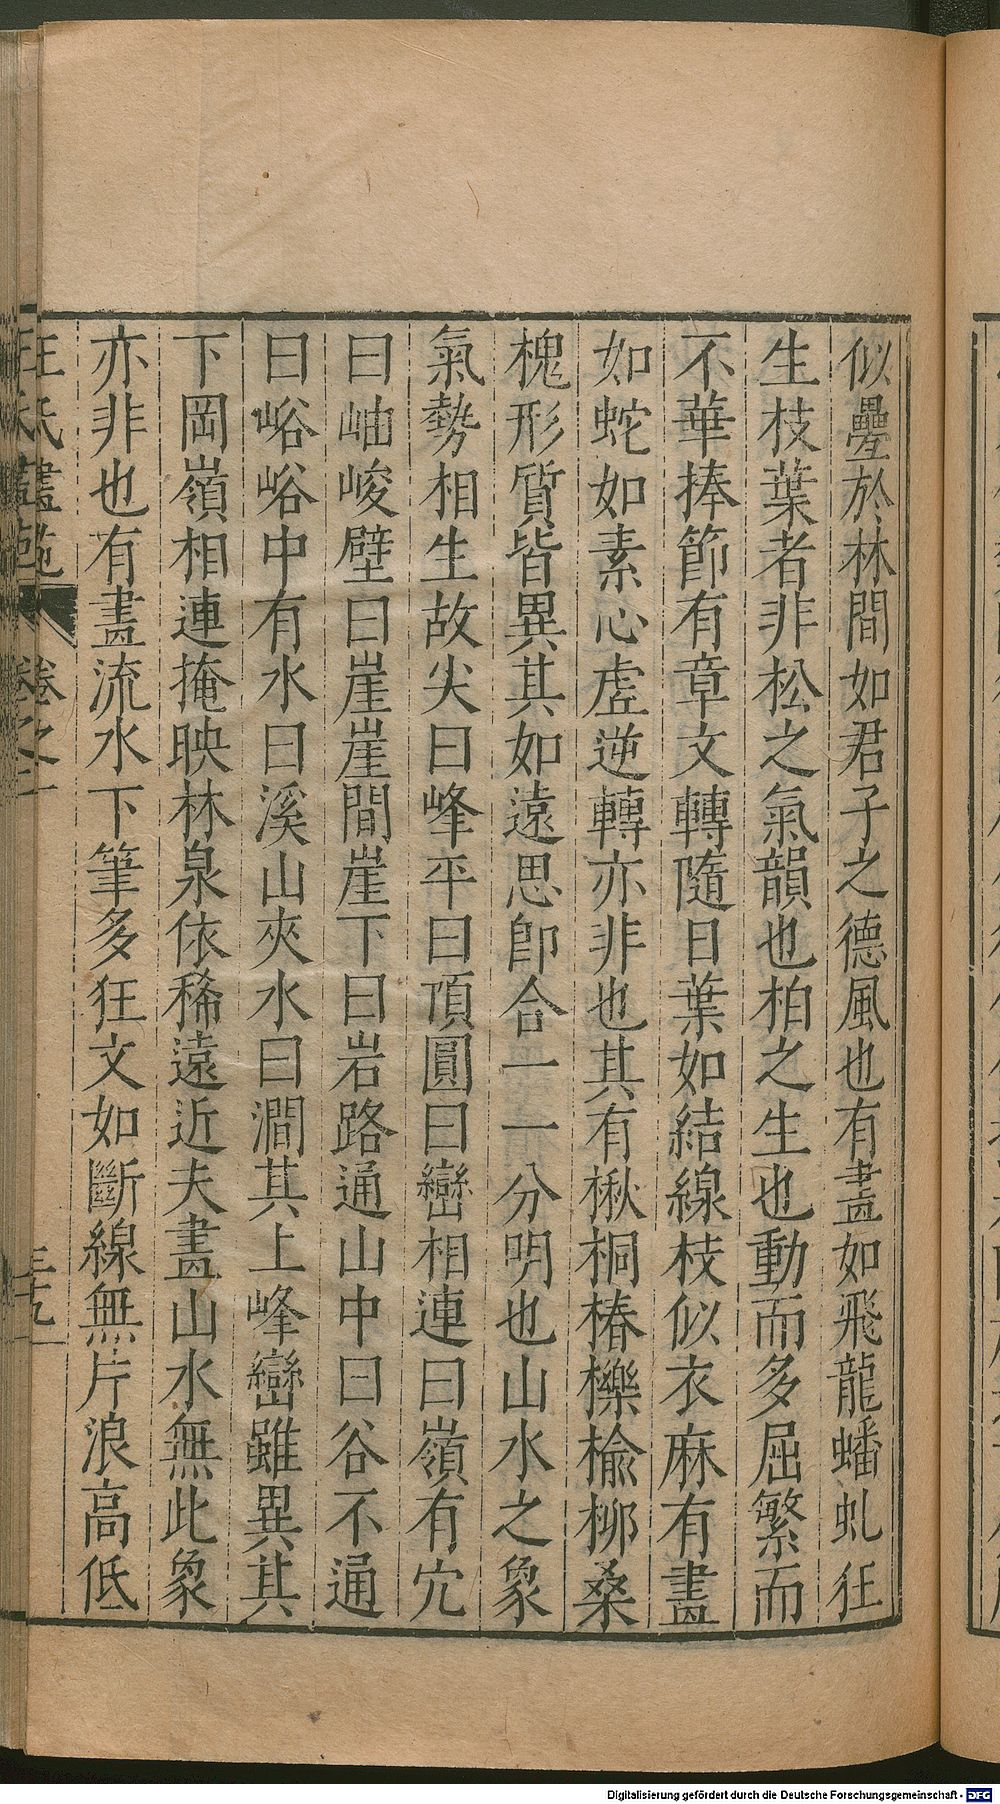 似疊於林間如君子之德風也有畫如飛龍蟠虬狂
生枝葉者非松之氣韻也柏之生也動而多屈繁而
不華捧節有章文轉隨日葉如結線枝似衣麻有畫
如蛇如素心虛逆轉亦非也其有楸桐椿櫟榆柳桑
槐形質皆異其如遠思卽合一一分明也山水之象
氣勢相生故尖曰峰平曰頂圓曰巒相連曰嶺有穴
曰岫峻壁曰崖崖間崖下曰岩路通山中曰谷不通
曰峪峪中有水曰溪山夾水曰澗其上峰巒雖異其
下岡嶺相連掩映林泉依稀遠近夫畫山水無此象
亦非也有畫流水下筆多狂文如斷線無片浪高低
王氏畫苑 卷之二 三十九
Digitalisierung gefördert durch die Deutsche Forschungsgemeinschaft - DFG